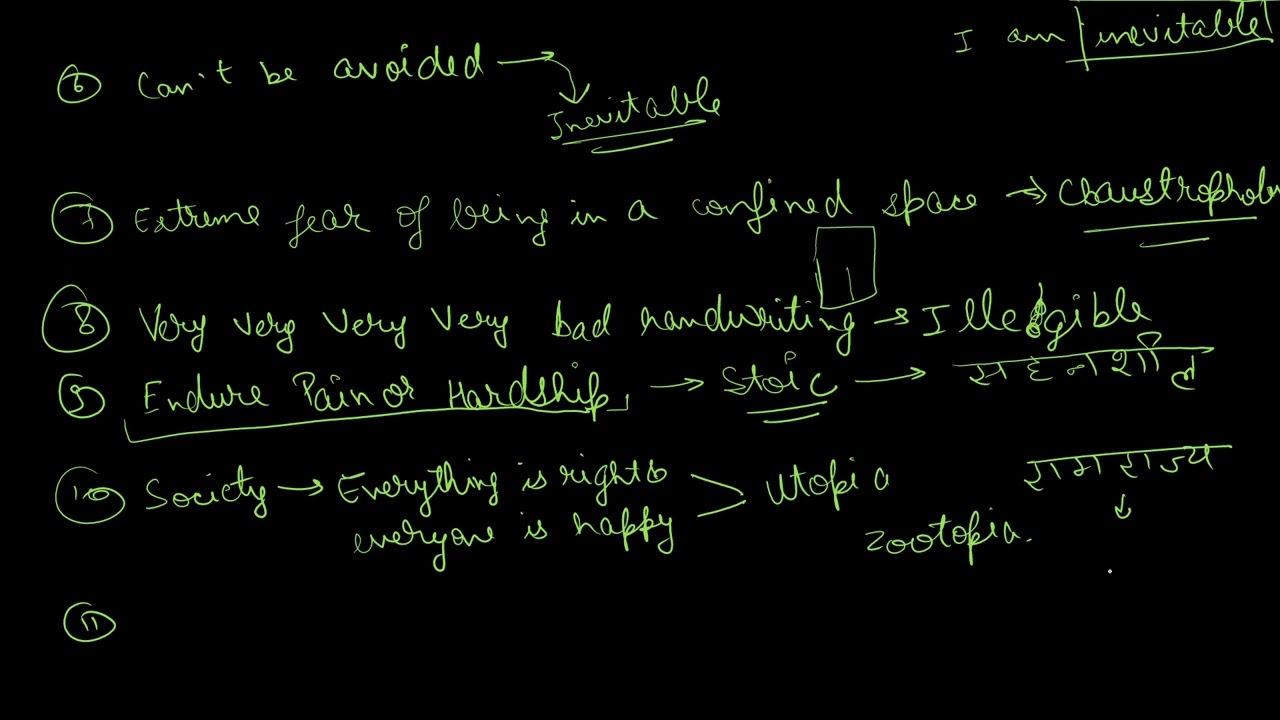 I am inevitable
⑥ Can't be avoided → Inevitable
⑦ Extreme fear of being in a confined space → Claustrophob
⑧ Very very very very bad handwriting → Illegible
⑨ Endure Pain or Hardship → Stoic → सहनशील
⑩ Society → Everything is right & everyone is happy > Utopia रामराज्य
zootopia.
⑪